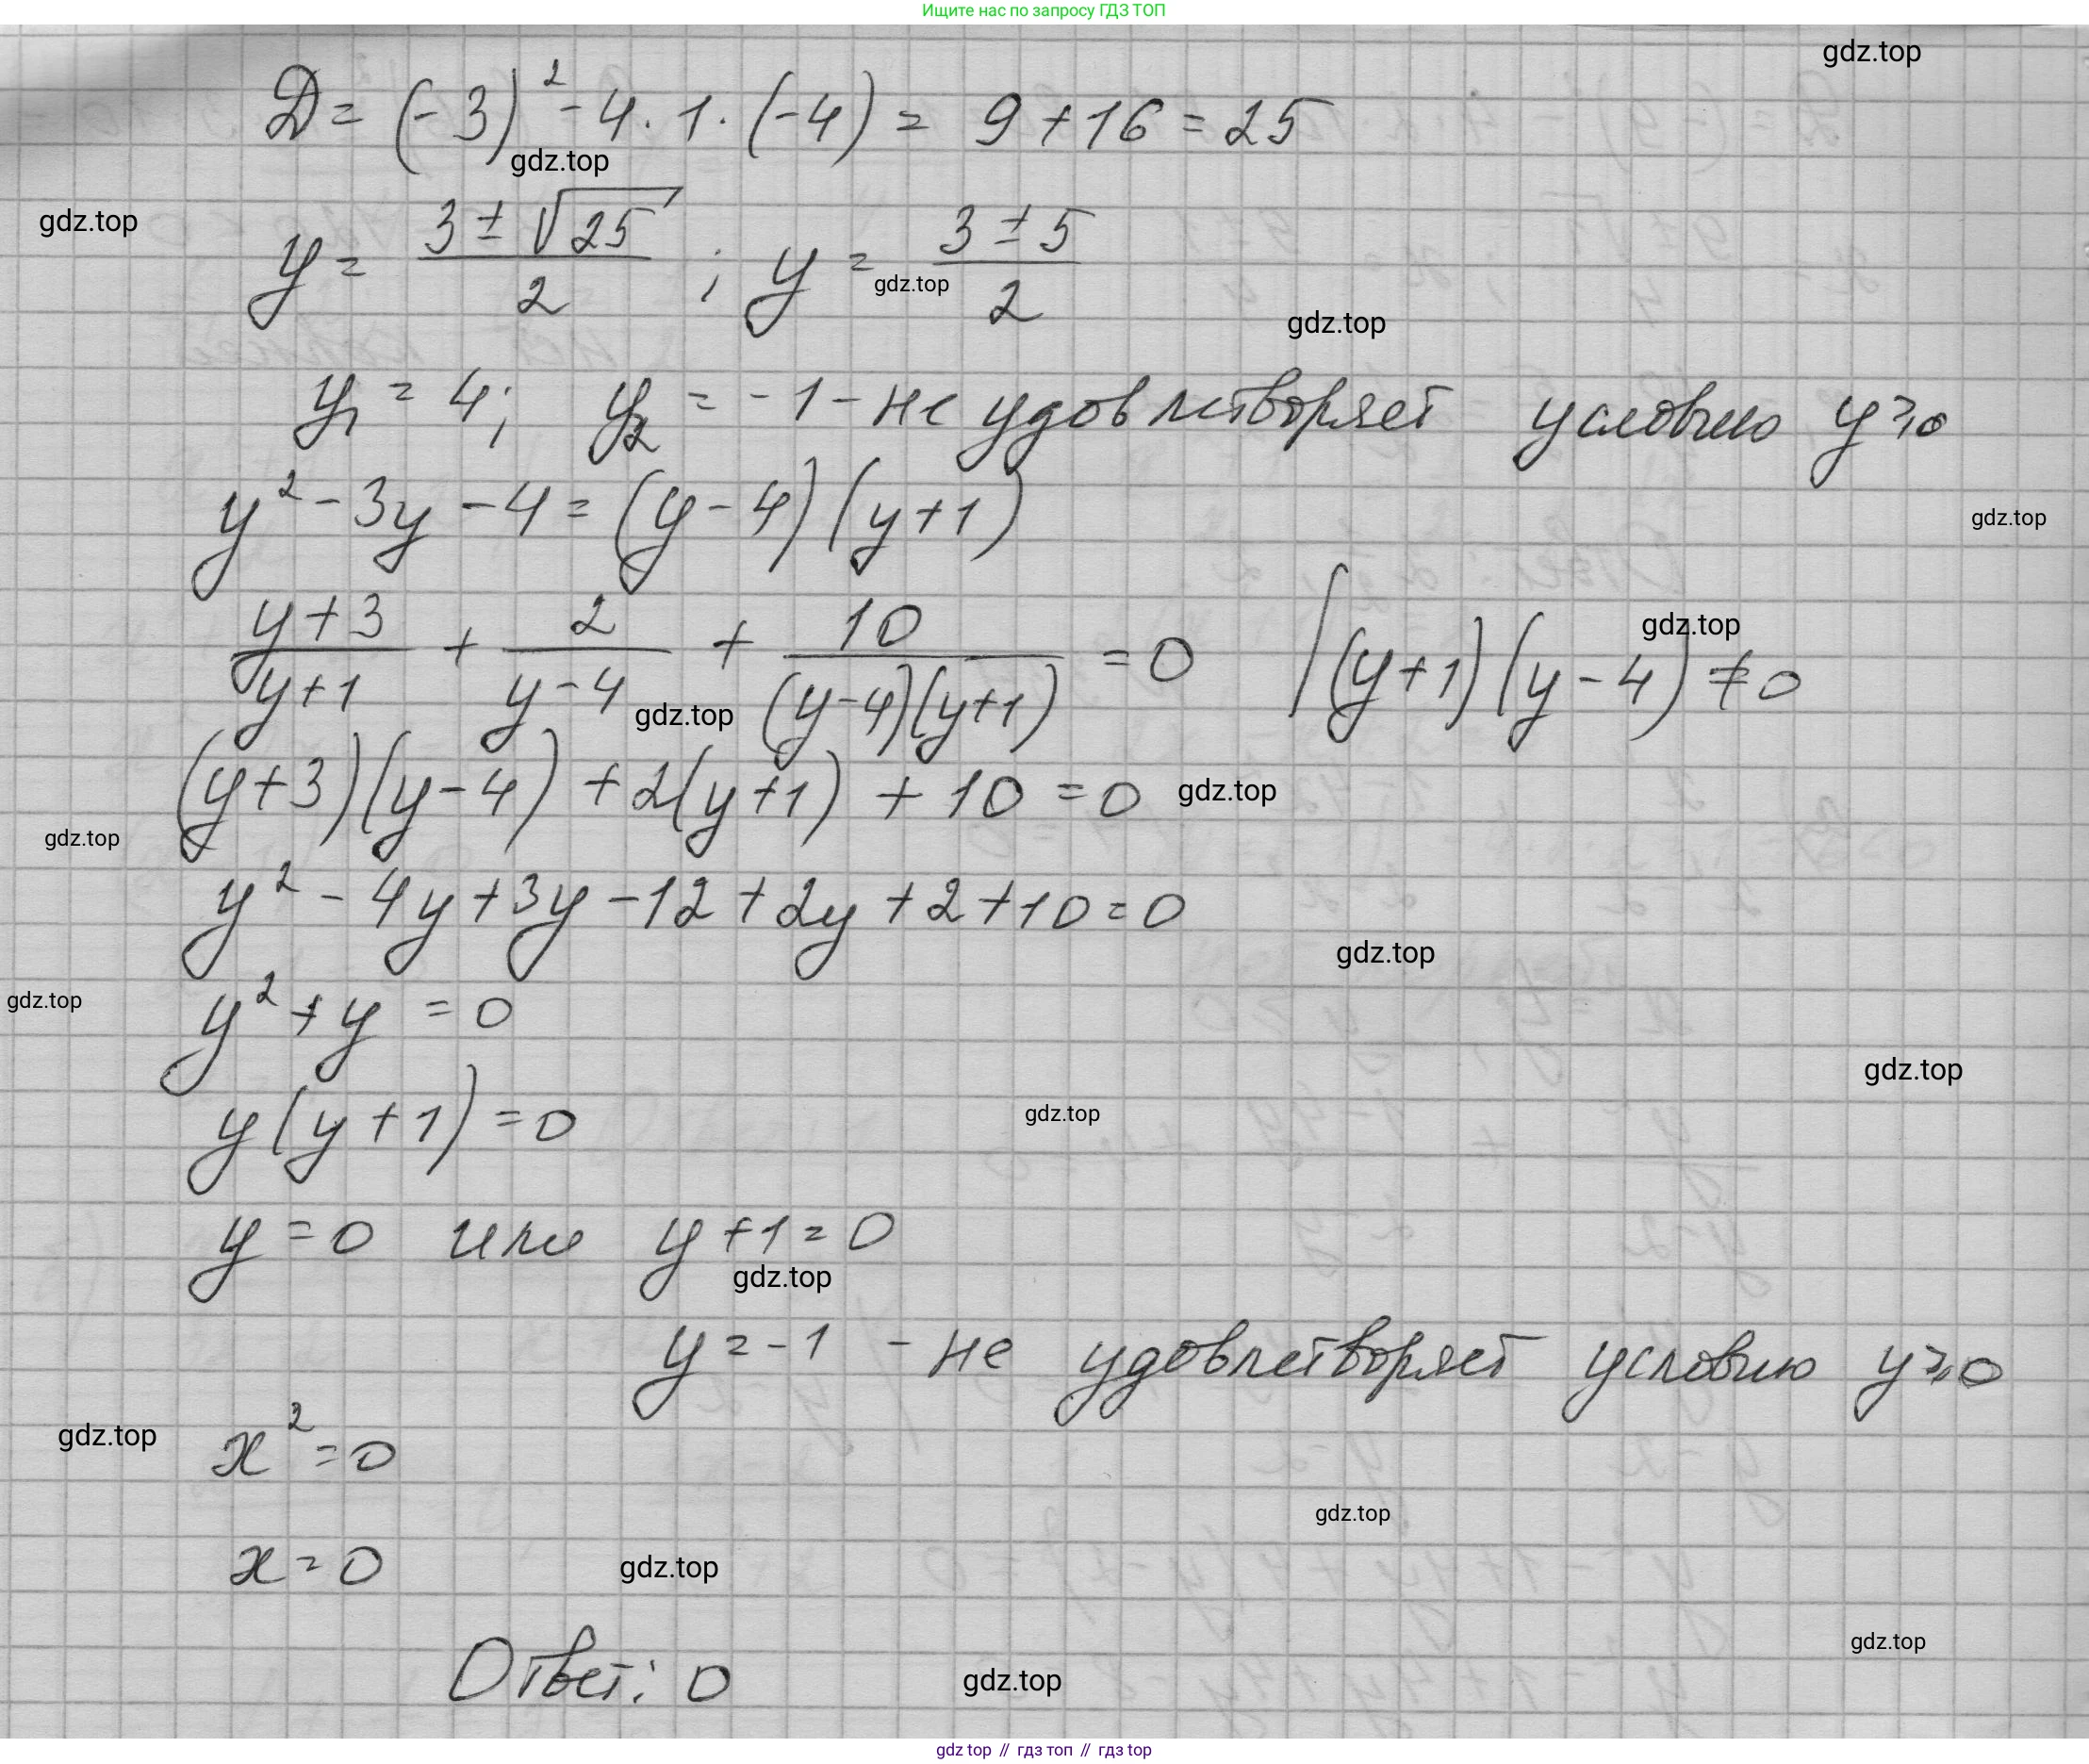 Ищите нас по запросу ГДЗ ТОП
gdz.top
D = (-3)² - 4 · 1 · (-4) = 9 + 16 = 25
gdz.top
gdz.top
y = (3 ± √25)/2 ; y = (3 ± 5)/2
gdz.top
gdz.top
y₁ = 4; y₂ = -1 - не удовлетворяет условию y ≥ 0
y² - 3y - 4 = (y - 4)(y + 1)
gdz.top
(y + 3)/(y + 1) + 2/(y - 4) + 10/((y - 4)(y + 1)) = 0 | (y + 1)(y - 4) ≠ 0
gdz.top
gdz.top
(y + 3)(y - 4) + 2(y + 1) + 10 = 0
gdz.top
gdz.top
y² - 4y + 3y - 12 + 2y + 2 + 10 = 0
gdz.top
gdz.top
y² + y = 0
gdz.top
y(y + 1) = 0
gdz.top
y = 0 или y + 1 = 0
gdz.top
y = -1 - не удовлетворяет условию y ≥ 0
gdz.top
x² = 0
gdz.top
x = 0
gdz.top
gdz.top
Ответ: 0
gdz.top
gdz top // гдз топ // гдз top